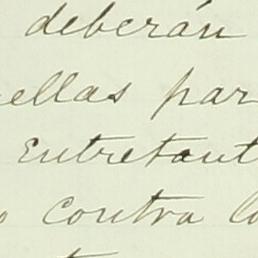 deberán
ellas par
entretant
o contra lo